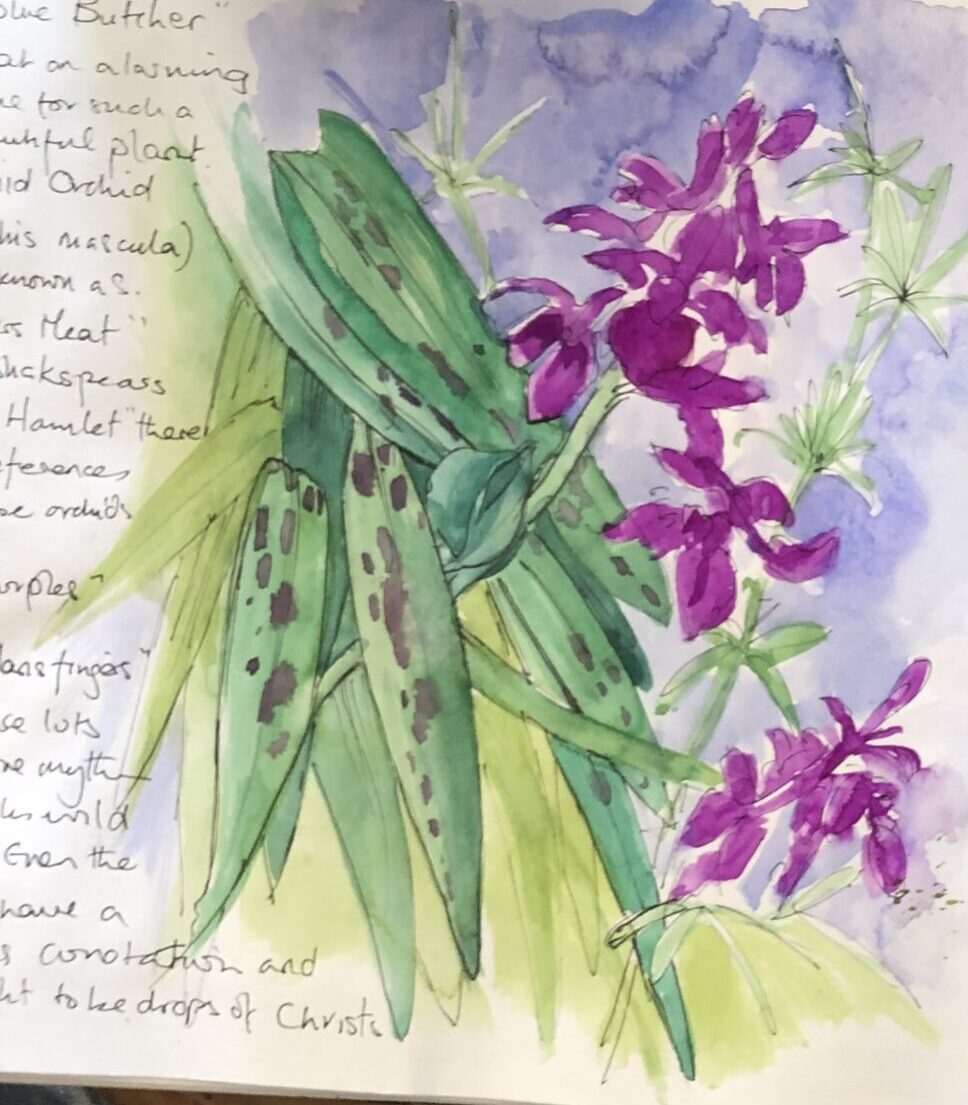 olue Butcher"
at an alarming
me for such a
uthful plant.
ild Orchid
his mascula)
known as.
ss Meat"
Hamlet "there
eferences
se orchids
orples"
lans fingers"
se lots
wild
Even the
have a
s conotation and
ht to be drops of Christs